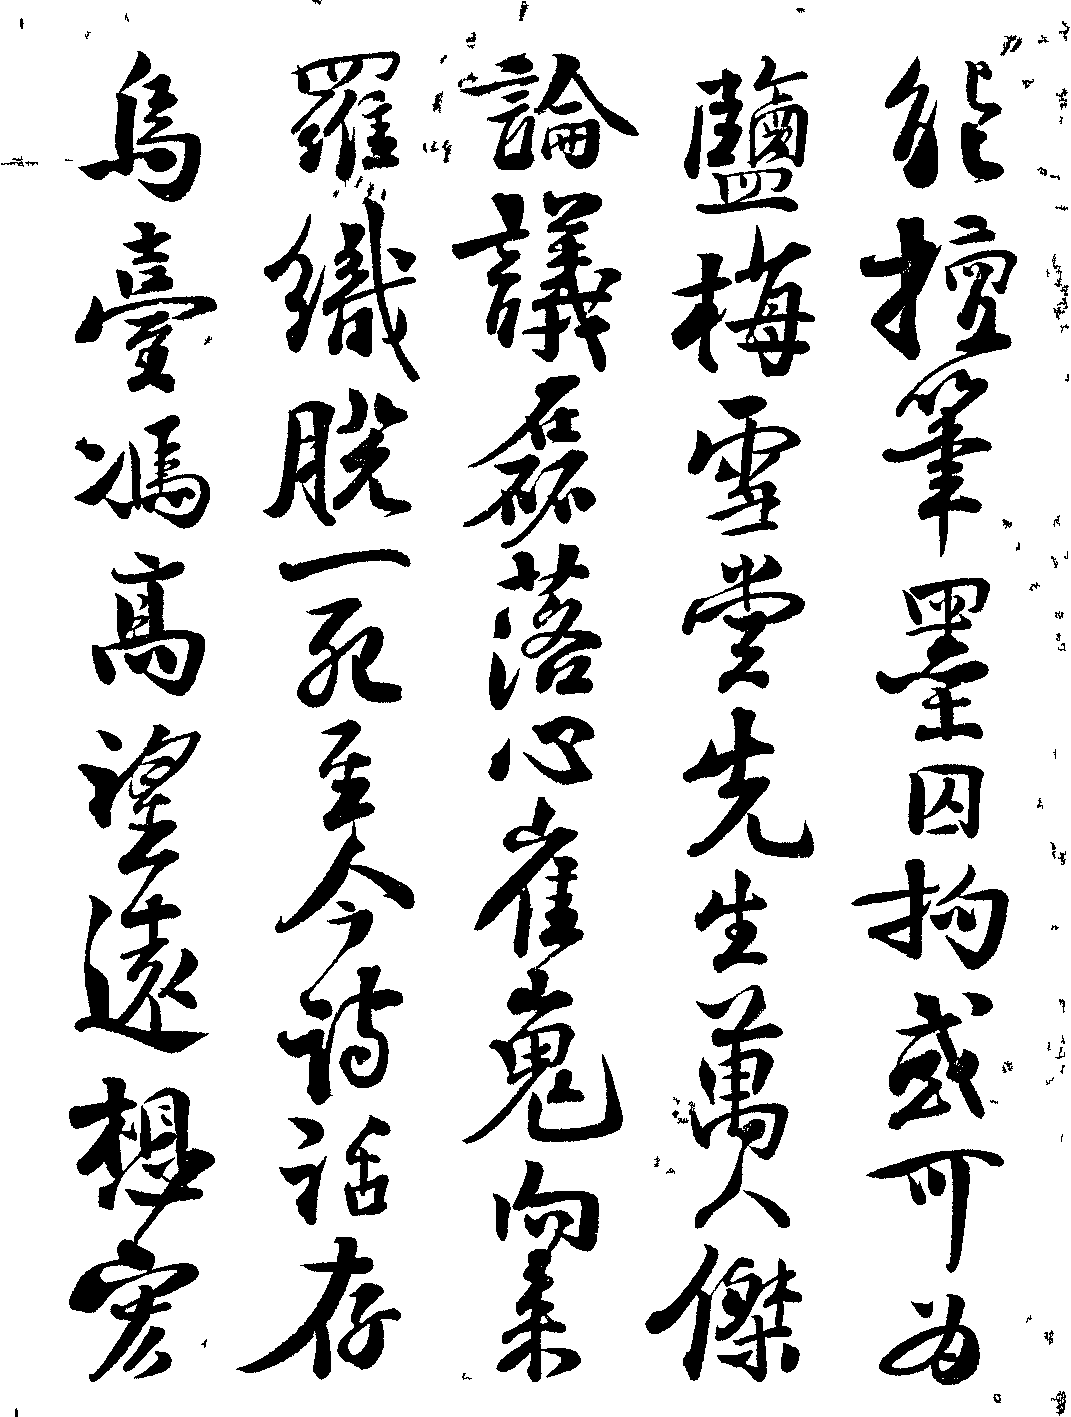 能擅筆墨囚拘或可為
鹽梅雪堂先生萬人傑
論議磊落心崔嵬向來
羅織脫一死至今詩話存
烏臺馮高望遠想宏